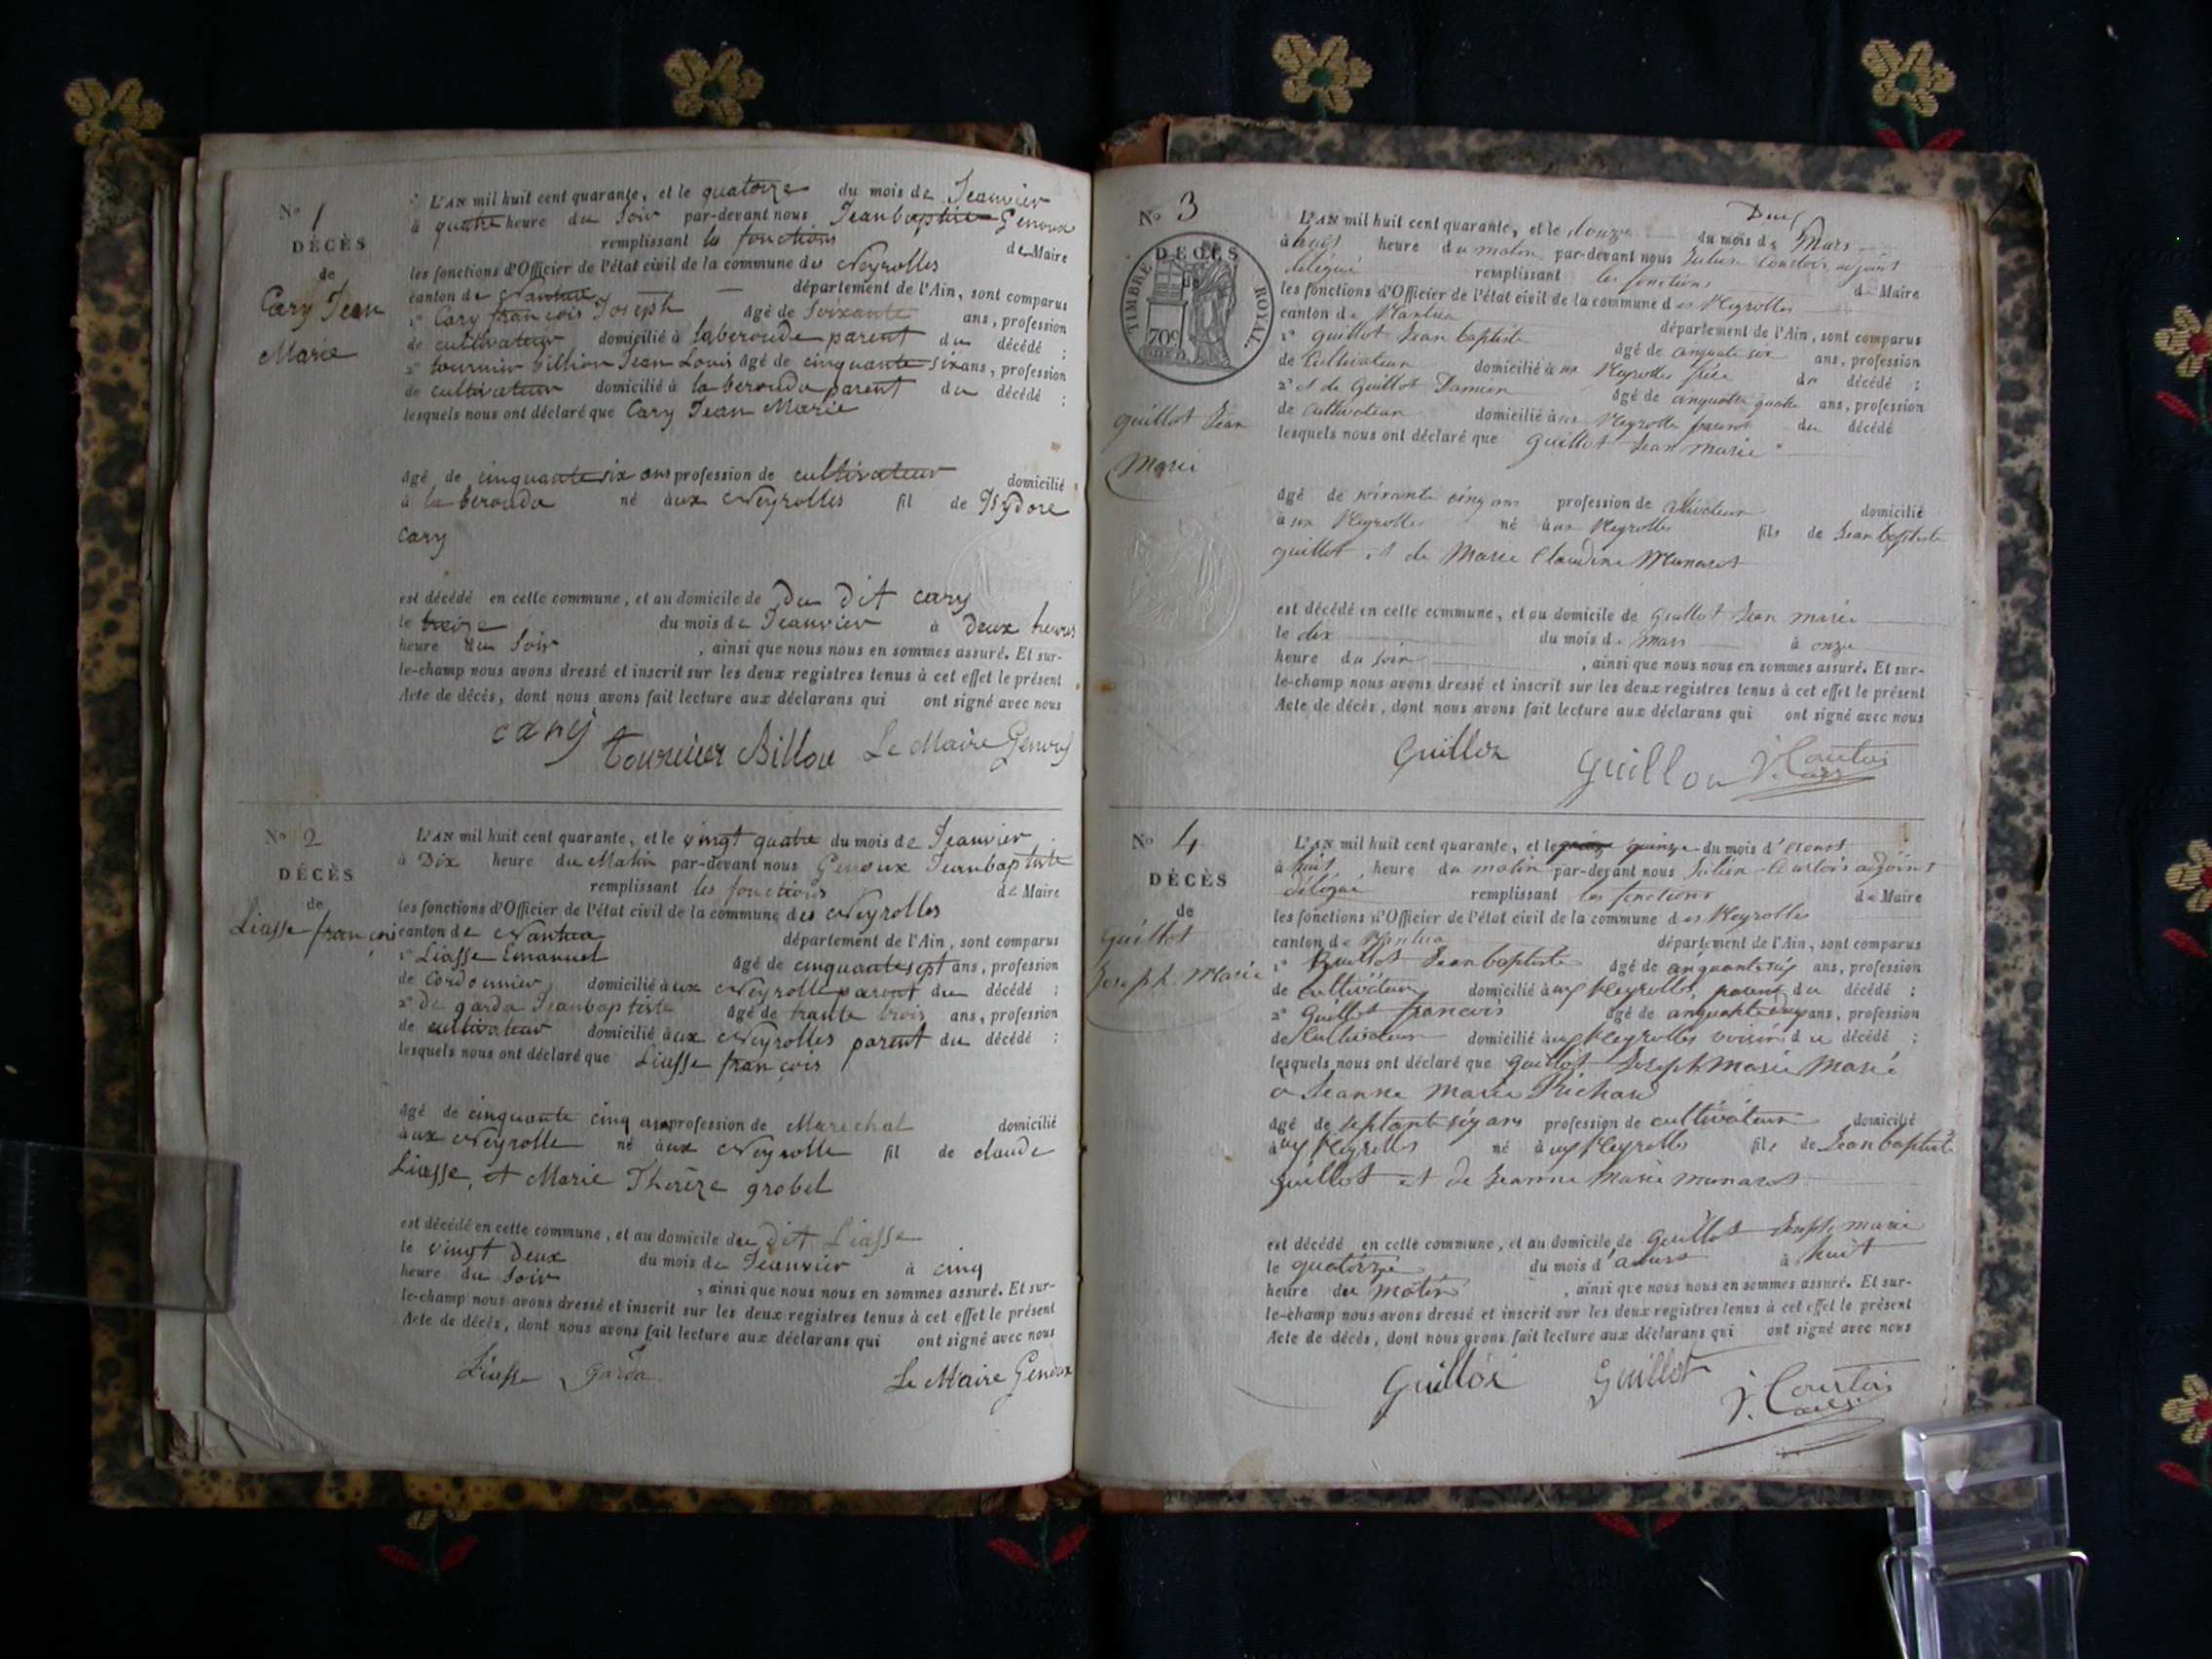 No 1
DÉCÈS
de
Cary Jean
Marie
L'AN mil huit cent quarante, et le quatorze du mois de Jeanvier
à quatre heure du Soir par-devant nous Jeanbaptiste Genoux
remplissant les fonctions de Maire
les fonctions d'Officier de l'état civil de la commune des Neyrolles
canton de Nantua département de l'Ain, sont comparus
1° Cary françois Joseph âgé de Soixante ans, profession
de cultivateur domicilié à laberouda parent du décédé ;
2° tournier billion Jean Louis âgé de cinquante six ans, profession
de cultivateur domicilié à la berouda parent du décédé ;
lesquels nous ont déclaré que Cary Jean Marie
âgé de cinquante six ans profession de cultivateur domicilié
à la berouda né aux Neyrolles fil de Isydore
Cary
est décédé en cette commune, et au domicile de Du Dit cary
le treize du mois de Jeanvier à Deux heures
heure du Soir , ainsi que nous nous en sommes assuré. Et sur-
le-champ nous avons dressé et inscrit sur les deux registres tenus à cet effet le présent
Acte de décès, dont nous avons fait lecture aux déclarans qui ont signé avec nous
cary tournier Billon Le Maire Genoux
No 2
DÉCÈS
de
Liasse françois
L'AN mil huit cent quarante, et le vingt quatre du mois de Jeanvier
à Dix heure du Matin par-devant nous Genoux Jeanbaptiste
remplissant les fonctions de Maire
les fonctions d'Officier de l'état civil de la commune des Neyrolles
canton de Nantua département de l'Ain, sont comparus
1° Liasse Emanuel âgé de cinquante sept ans, profession
de Cordonnier domicilié aux Neyrolle parent du décédé ;
2° De garda Jeanbaptiste âgé de trante trois ans, profession
de cultivateur domicilié aux Neyrolles parent du décédé ;
lesquels nous ont déclaré que Liasse françois
âgé de cinquante cinq ans profession de Marechal domicilié
aux Neyrolle né aux Neyrolle fil de claude
Liasse, et Marie Thérèze grobel
est décédé en cette commune, et au domicile du dit Liasse
le vingt Deux du mois de Jeanvier à cinq
heure du Soir , ainsi que nous nous en sommes assuré. Et sur-
le-champ nous avons dressé et inscrit sur les deux registres tenus à cet effet le présent
Acte de décès, dont nous avons fait lecture aux déclarans qui ont signé avec nous
Liasse garda Le Maire Genoux
No 3
DÉCÈS
de
TIMBRE ROYAL.
70c
guillot Jean
Marie
L'AN mil huit cent quarante, et le douze du mois de Mars
à heure du matin par-devant nous Julien Courtois adjoint
délégué remplissant les fonctions de Maire
les fonctions d'Officier de l'état civil de la commune des Neyrolles
canton de Nantua département de l'Ain, sont comparus
1° guillot Jean baptiste âgé de cinquante six ans, profession
de Cultivateur domicilié aux Neyrolles frère du décédé ;
2° et de Guillot Damien âgé de cinquante quatre ans, profession
de Cultivateur domicilié aux Neyrolles parent du décédé
lesquels nous ont déclaré que guillot Jean marie
âgé de soixante cinq ans profession de cultivateur domicilié
aux Neyrolles né aux Neyrolles fils de Jean baptiste
guillot et de Marie Claudine Munaret
est décédé en cette commune, et au domicile de guillot Jean marie
le dix du mois de mars à onze
heure du soir , ainsi que nous nous en sommes assuré. Et sur-
le-champ nous avons dressé et inscrit sur les deux registres tenus à cet effet le présent
Acte de décès, dont nous avons fait lecture aux déclarans qui ont signé avec nous
Guillot Guillot J. Courtois
No 4
DÉCÈS
de
Guillot
Joseph Marie
L'AN mil huit cent quarante, et le quinze du mois d'
à huit heure du matin par-devant nous Julien Courtois adjoint
délégué remplissant les fonctions de Maire
les fonctions d'Officier de l'état civil de la commune des Neyrolles
canton de Nantua département de l'Ain, sont comparus
1° Guillot Jean baptiste âgé de cinquante six ans, profession
de cultivateur domicilié aux Neyrolles, parent du décédé ;
2° Guillot francois âgé de ans, profession
de Cultivateur domicilié aux Neyrolles voisin du décédé ;
lesquels nous ont déclaré que guillot Joseph Marie Marié
a Jeanne Marie Richard
âgé de septante six ans profession de cultivateur domicilié
aux Neyrolles né aux Neyrolles fils de Jean baptiste
guillot et de Jeanne Marie munaret
est décédé en cette commune, et au domicile de guillot Joseph marie
le quatorze du mois d' à huit
heure du matin , ainsi que nous nous en sommes assuré. Et sur-
le-champ nous avons dressé et inscrit sur les deux registres tenus à cet effet le présent
Acte de décès, dont nous avons fait lecture aux déclarans qui ont signé avec nous
Guillot Guillot J. Courtois